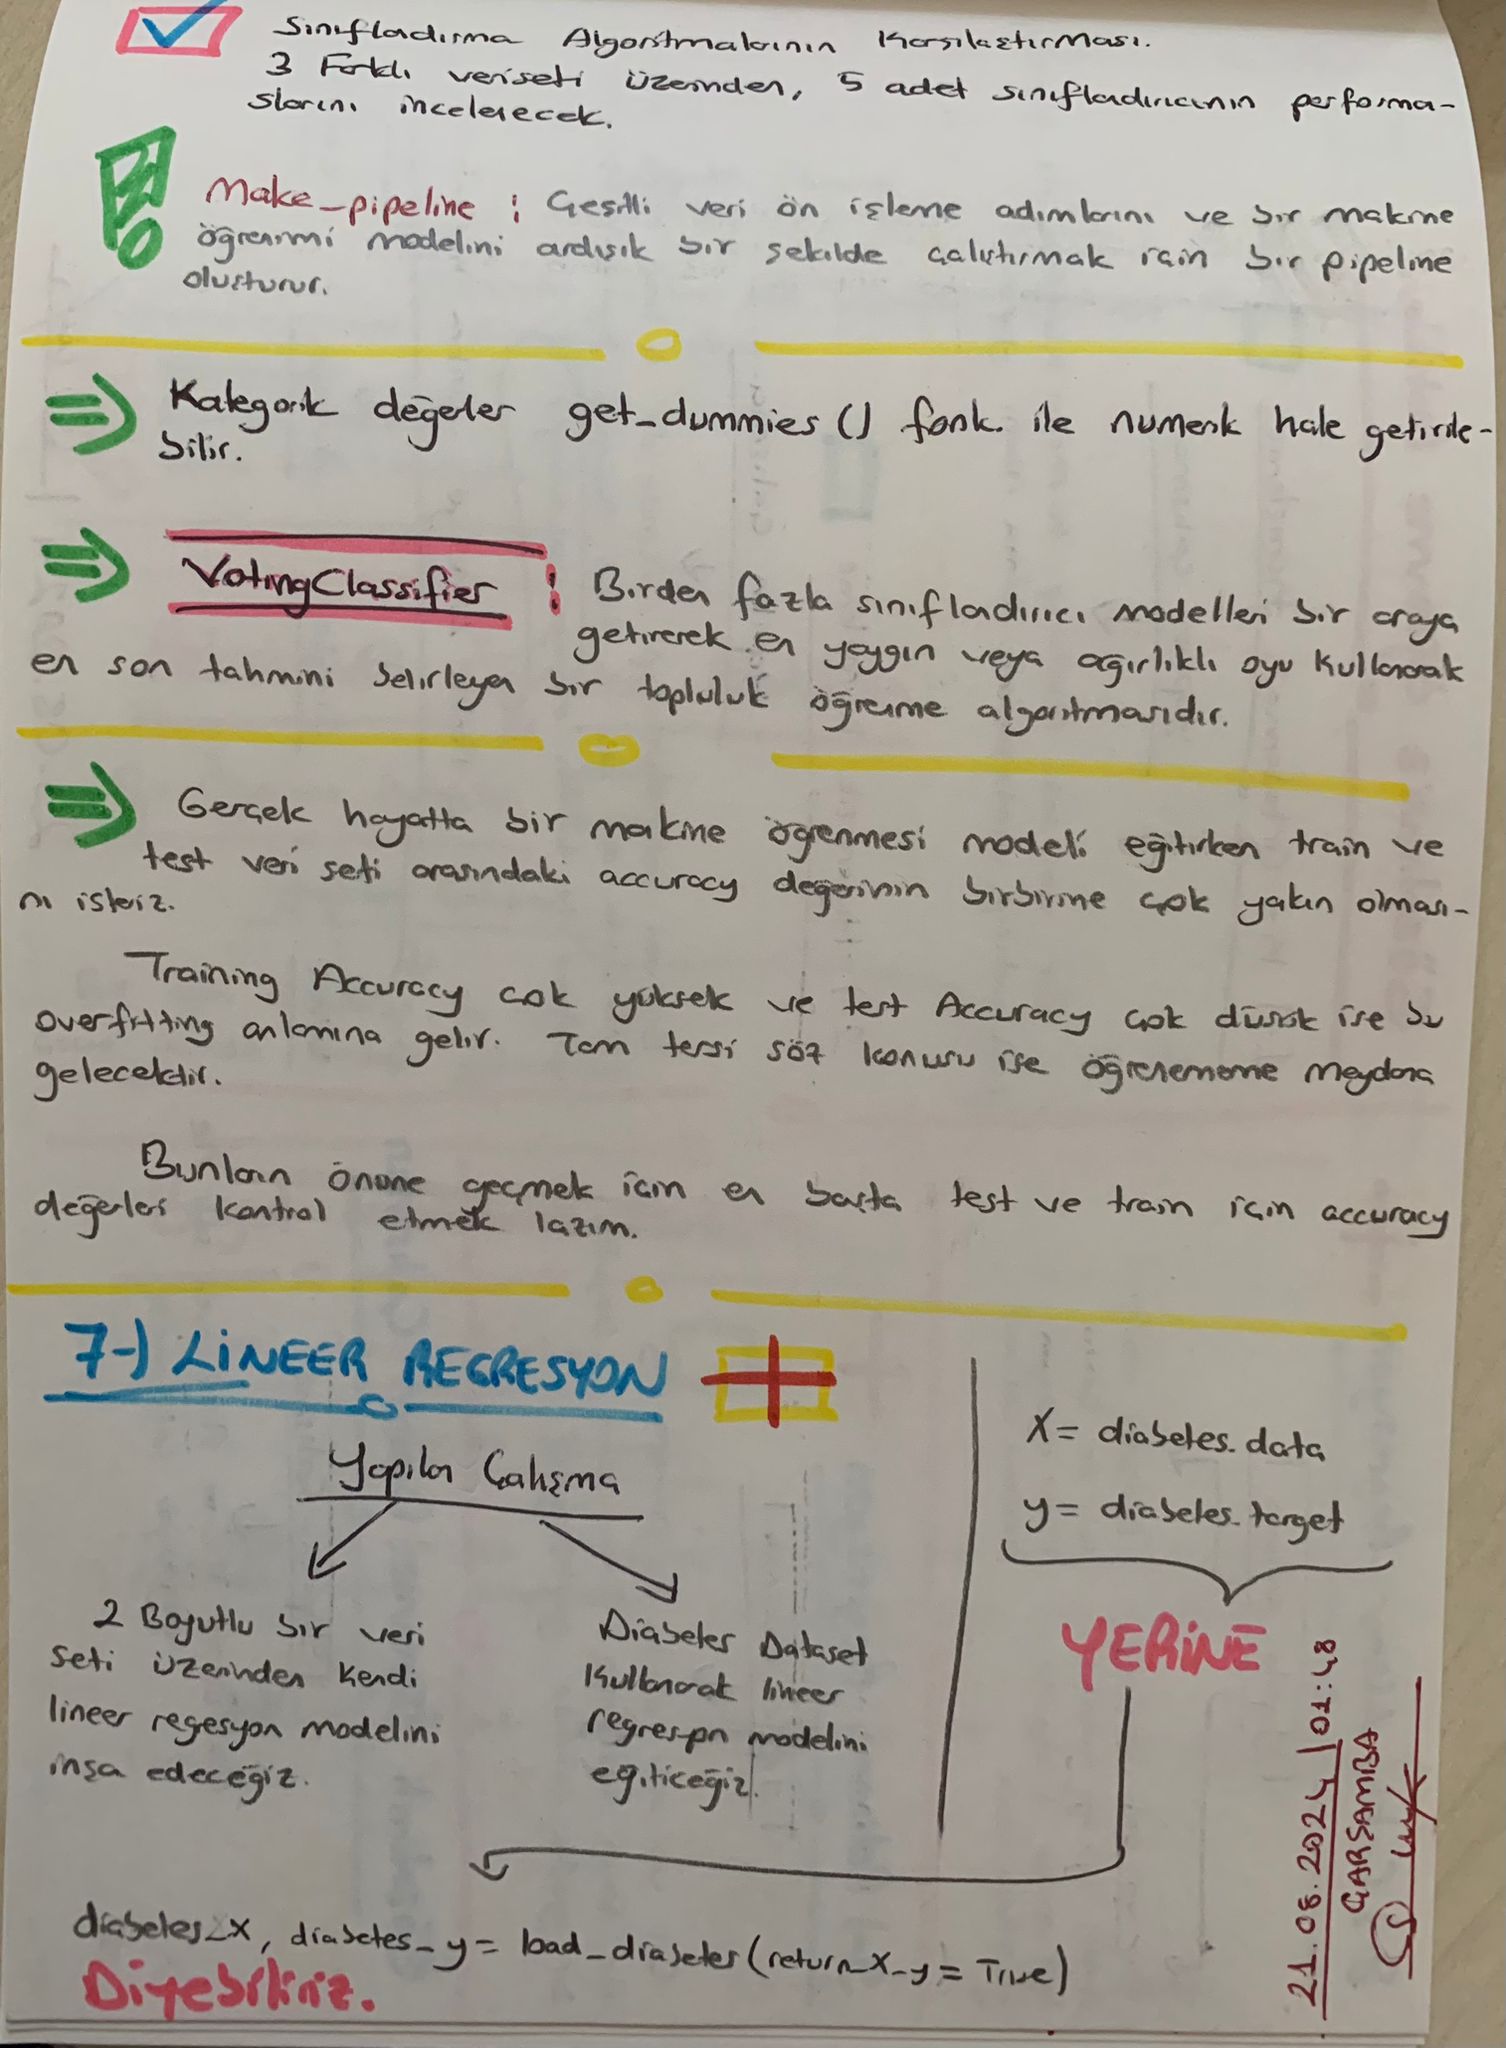 Sınıflandırma Algoritmalarının Karşılaştırması.
3 Farklı veriseti üzerinden, 5 adet sınıflandırıcının performa-
slarını incelenecek.
Make_pipeline : Çeşitli veri ön işleme adımlarını ve bir makine
öğrenimi modelini ardışık bir şekilde çalıştırmak için bir pipeline
oluşturur.
Kategorik değerler get_dummies() fonk. ile numerik hale getirile-
bilir.
VotingClassifier : Birden fazla sınıflandırıcı modelleri bir araya
getirerek en yaygın veya ağırlıklı oyu kullanarak
en son tahmini belirleyen bir topluluk öğrenme algoritmasıdır.
Gerçek hayatta bir makine öğrenmesi modeli eğitirken train ve
test veri seti arasındaki accuracy değerinin birbirine çok yakın olması-
nı isteriz.
Training Accuracy çok yüksek ve test Accuracy çok düşük ise bu
overfitting anlamına gelir. Tam tersi söz konusu ise öğrenememe meydana
gelecektir.
Bunların önüne geçmek için en başta test ve train için accuracy
değerleri kontrol etmek lazım.
7-) LİNEER REGRESYON
Yapılan Çalışma
2 Boyutlu bir veri
seti üzerinden kendi
lineer regesyon modelini
inşa edeceğiz.
Diabetes Dataset
kullanarak lineer
regresyon modelini
eğiticeğiz.
X = diabetes.data
y = diabetes.target
YERİNE
diabetes_x, diabetes_y = load_diabetes(return_X_y = True)
Diyebiliriz.
21.08.2024 | 01:48
ÇARŞAMBA